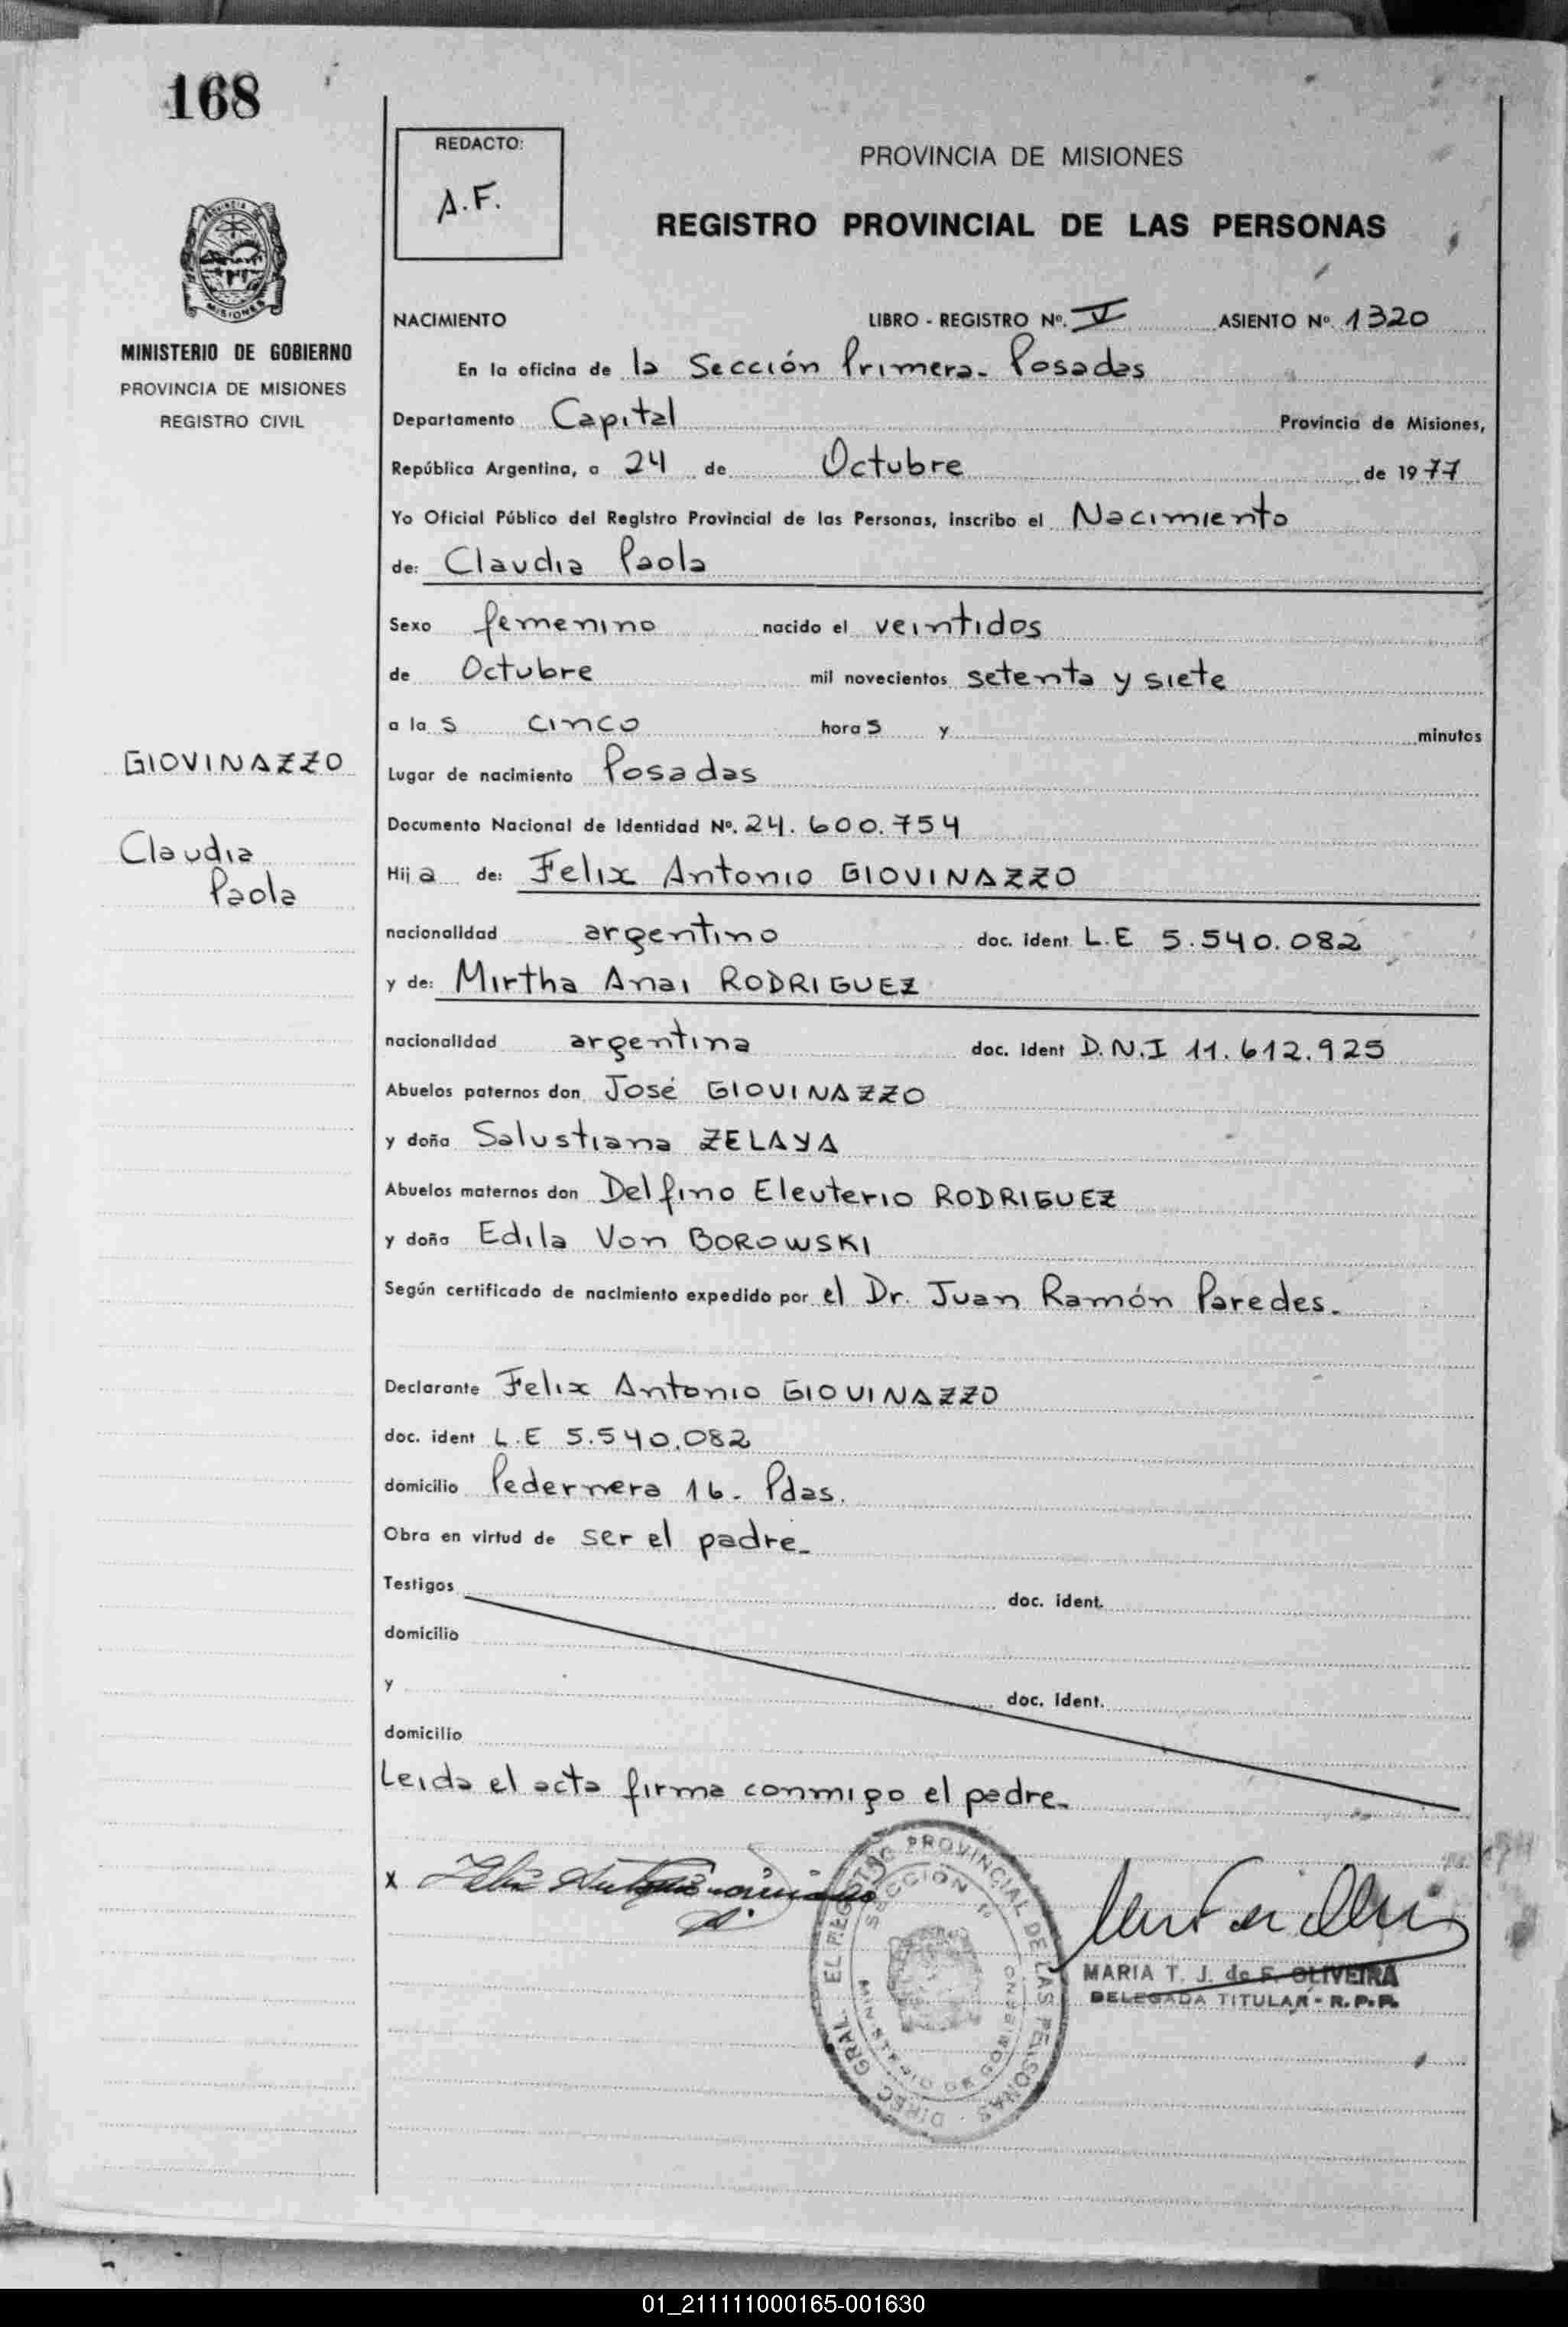 168
REDACTO:
A.F.
PROVINCIA DE MISIONES
REGISTRO PROVINCIAL DE LAS PERSONAS
MINISTERIO DE GOBIERNO
PROVINCIA DE MISIONES
REGISTRO CIVIL
NACIMIENTO LIBRO - REGISTRO Nº. V ASIENTO Nº 1320
En la oficina de la Sección Primera- Posadas
Departamento Capital Provincia de Misiones,
República Argentina, a 24 de Octubre de 1977
Yo Oficial Público del Registro Provincial de las Personas, inscribo el Nacimiento
de: Claudia Paola
Sexo femenino nacido el veintidos
de Octubre mil novecientos setenta y siete
a las cinco horas y minutos
GIOVINAZZO
Claudia
Paola
Lugar de nacimiento Posadas
Documento Nacional de Identidad Nº. 24.600.754
Hija de: Felix Antonio GIOVINAZZO
nacionalidad argentino doc. ident. L.E 5.540.082
y de: Mirtha Anai RODRIGUEZ
nacionalidad argentina doc. ident D.N.I 11.612.925
Abuelos paternos don José GIOVINAZZO
y doña Salustiana ZELAYA
Abuelos maternos don Delfino Eleuterio RODRIGUEZ
y doña Edila Von BOROWSKI
Según certificado de nacimiento expedido por el Dr. Juan Ramón Paredes.
Declarante Felix Antonio GIOVINAZZO
doc. ident L.E 5.540.082
domicilio Pedernera 16- Pdas.
Obra en virtud de ser el padre-
Testigos doc. ident.
domicilio
y doc. ident.
domicilio
Leida el acta firma conmigo el padre-
x Felix Antonio
DIREC. GRAL. EL REGISTRO PROVINCIAL DE LAS PERSONAS
SECCION 1º
MINISTERIO DE GOBIERNO
MARIA T. J. de F. OLIVEIRA
DELEGADA TITULAR - R.P.P.
01_211111000165-001630